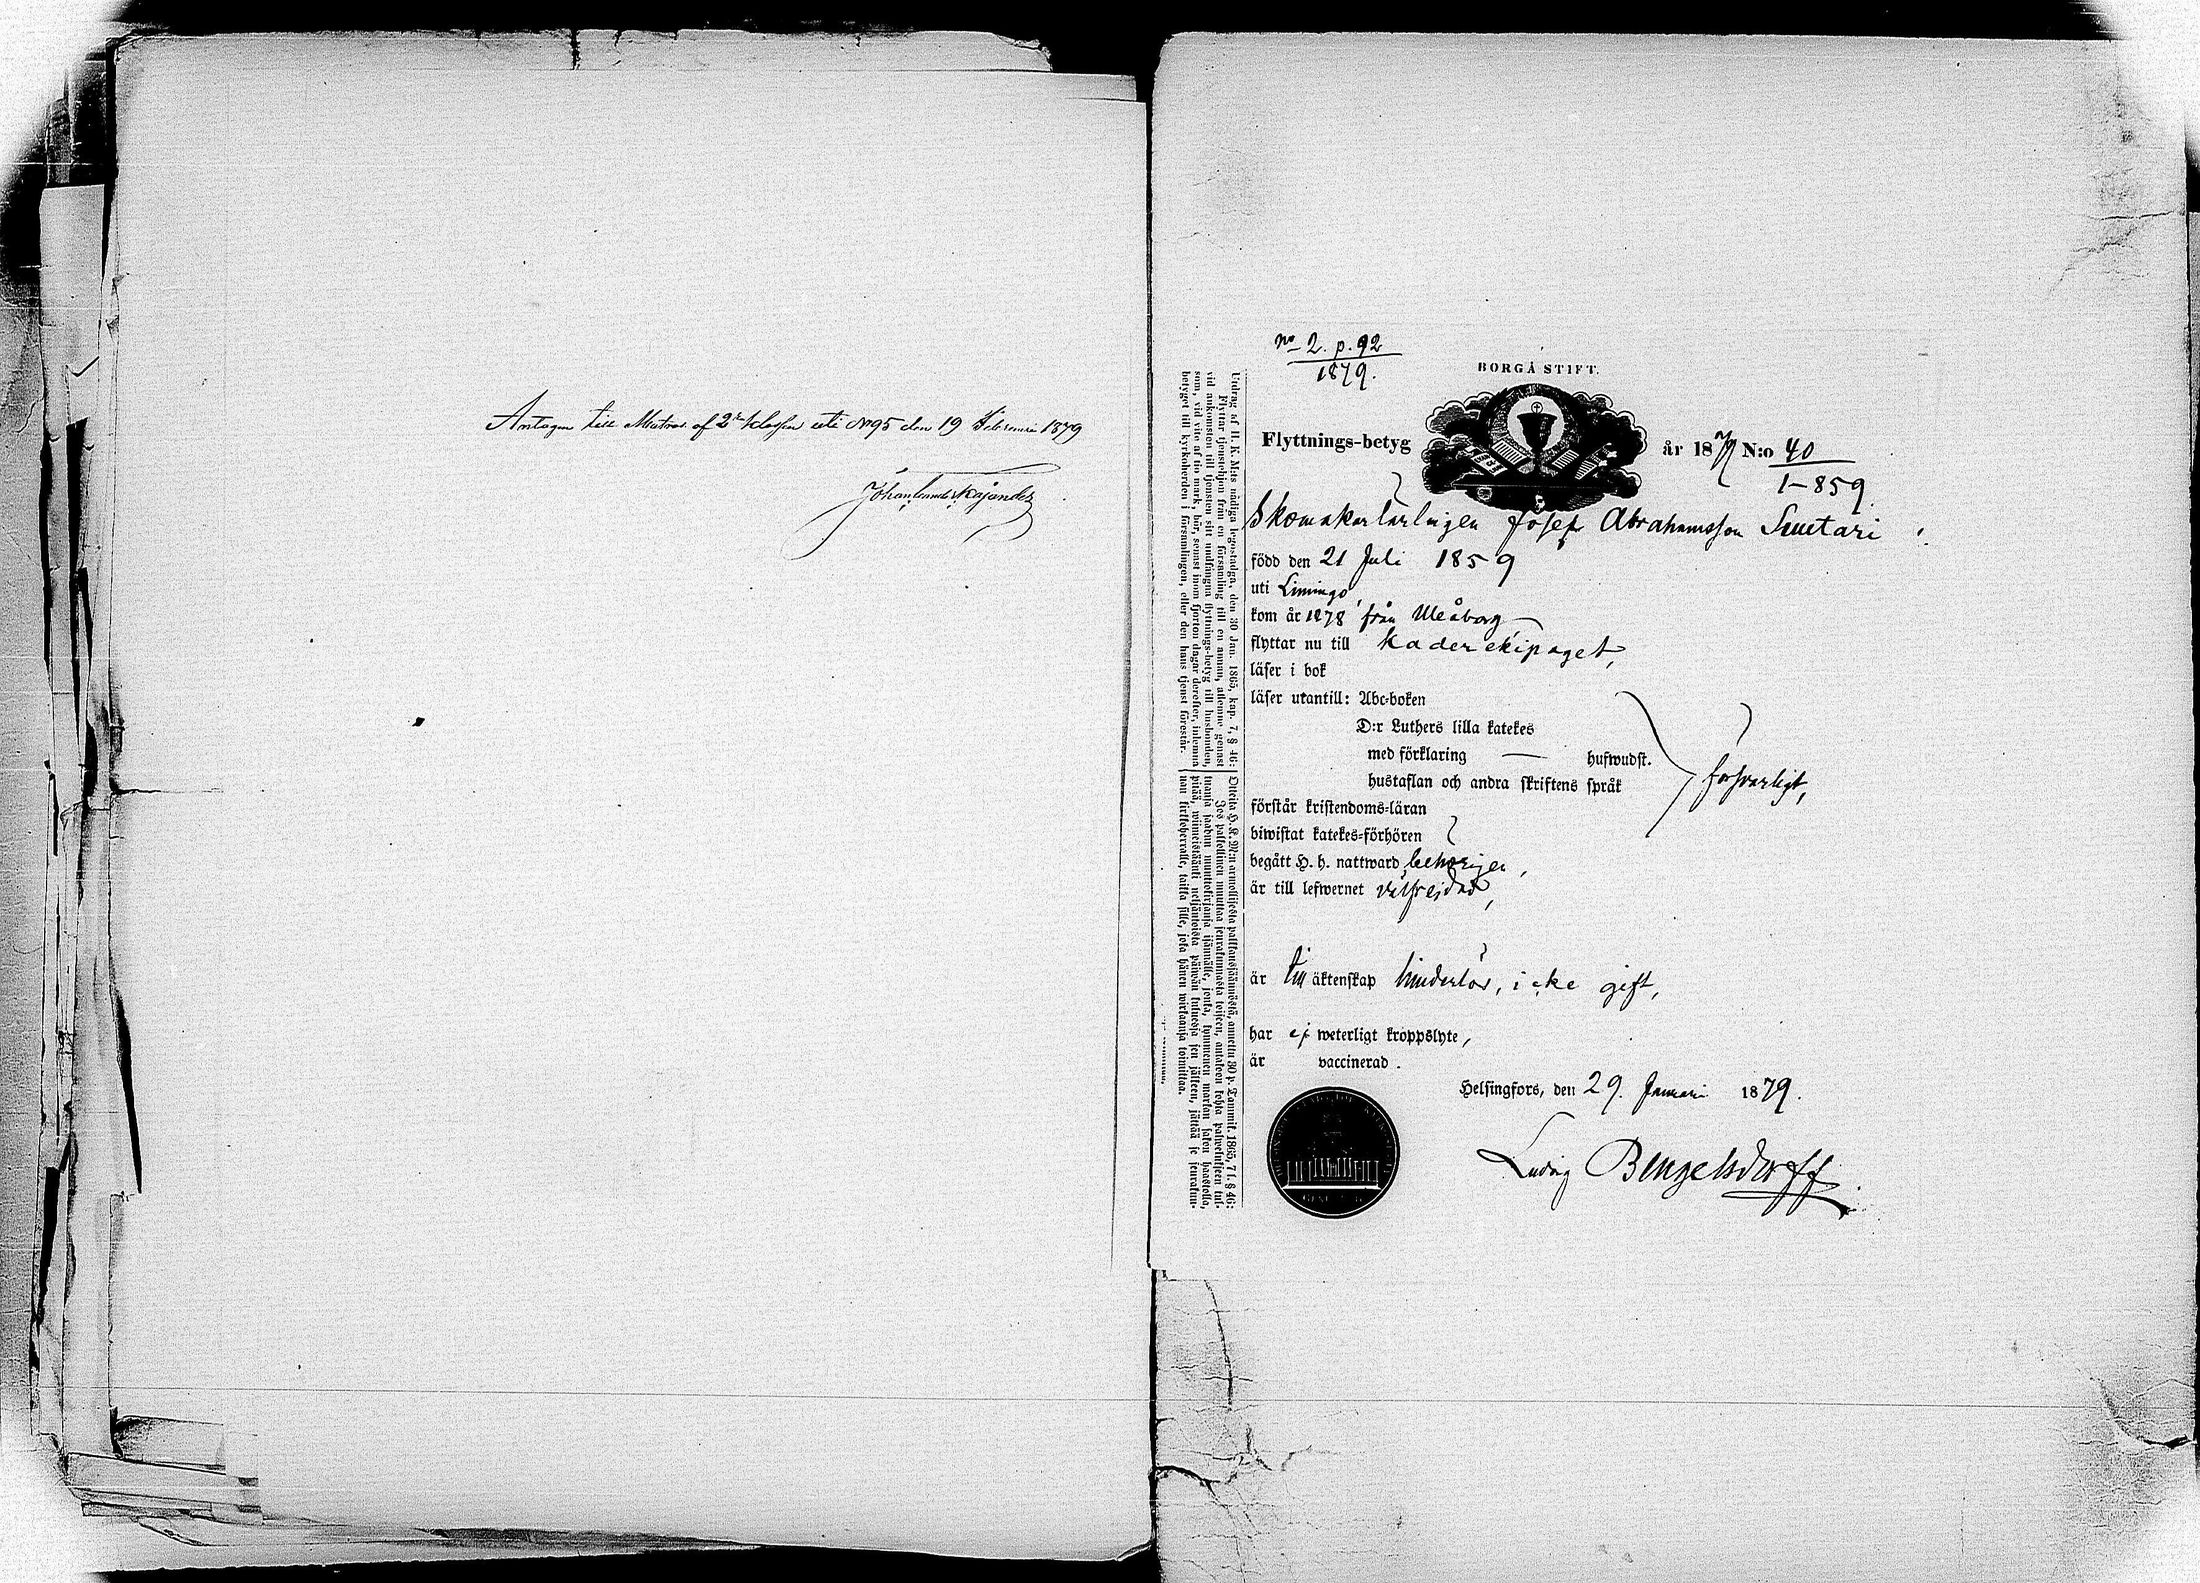 Antagen till Matros af 2dra klassen uti No 95 den 19 Februari 1879
Johan Kajander
No 2. p. 92
1879.
BORGÅ STIFT.
Flyttnings-betyg
år 1879 N:o 40
1-859.
Skomakarlärlingen Josef Abrahamsson Suutari,
född den 21 Juli 1859
uti Limingo,
kom år 1878 från Uleåborg
flyttar nu till Kaderekipaget,
läser i bok
läser utantill: Abc-boken
D:r Luthers lilla katekes
med förklaring — hufwudst.
hustaflan och andra skriftens språk
försvarligt,
förstår kristendoms-läran
biwistat katekes-förhören
begått H. h. nattward behörigen,
är till lefwernet välfrejdad,
är till äktenskap hinderlös, icke gift,
har ej weterligt kroppslyte,
är vaccinerad.
Helsingfors, den 29. Januari 1879.
Ludvig Bengelsdorff
Utdrag af H. K. M:ts nådiga legostadga, den 30 Jan. 1865, kap. 7, § 46:
Flyttar tjenstehjon från en församling till en annan, aflemne genast
vid ankomsten till tjensten sitt undfångna flyttnings-betyg till husbonden,
som, vid vite af tio mark, bör, sednast inom fjorton dagar derefter, inlemna
betyget till kyrkoherden i församlingen, eller den hans tjenst förestår.